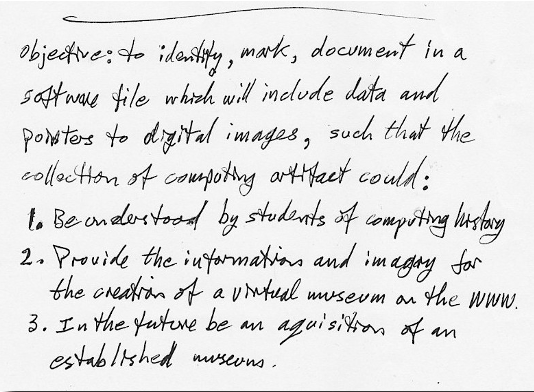 Objective: to identify, mark, document in a
software file which will include data and
pointers to digital images, such that the
collection of computing artifact could:
1. Be understood by students of computing history
2. Provide the information and imagery for
the creation of a virtual museum on the WWW.
3. In the future be an aquisition of an
established museum.